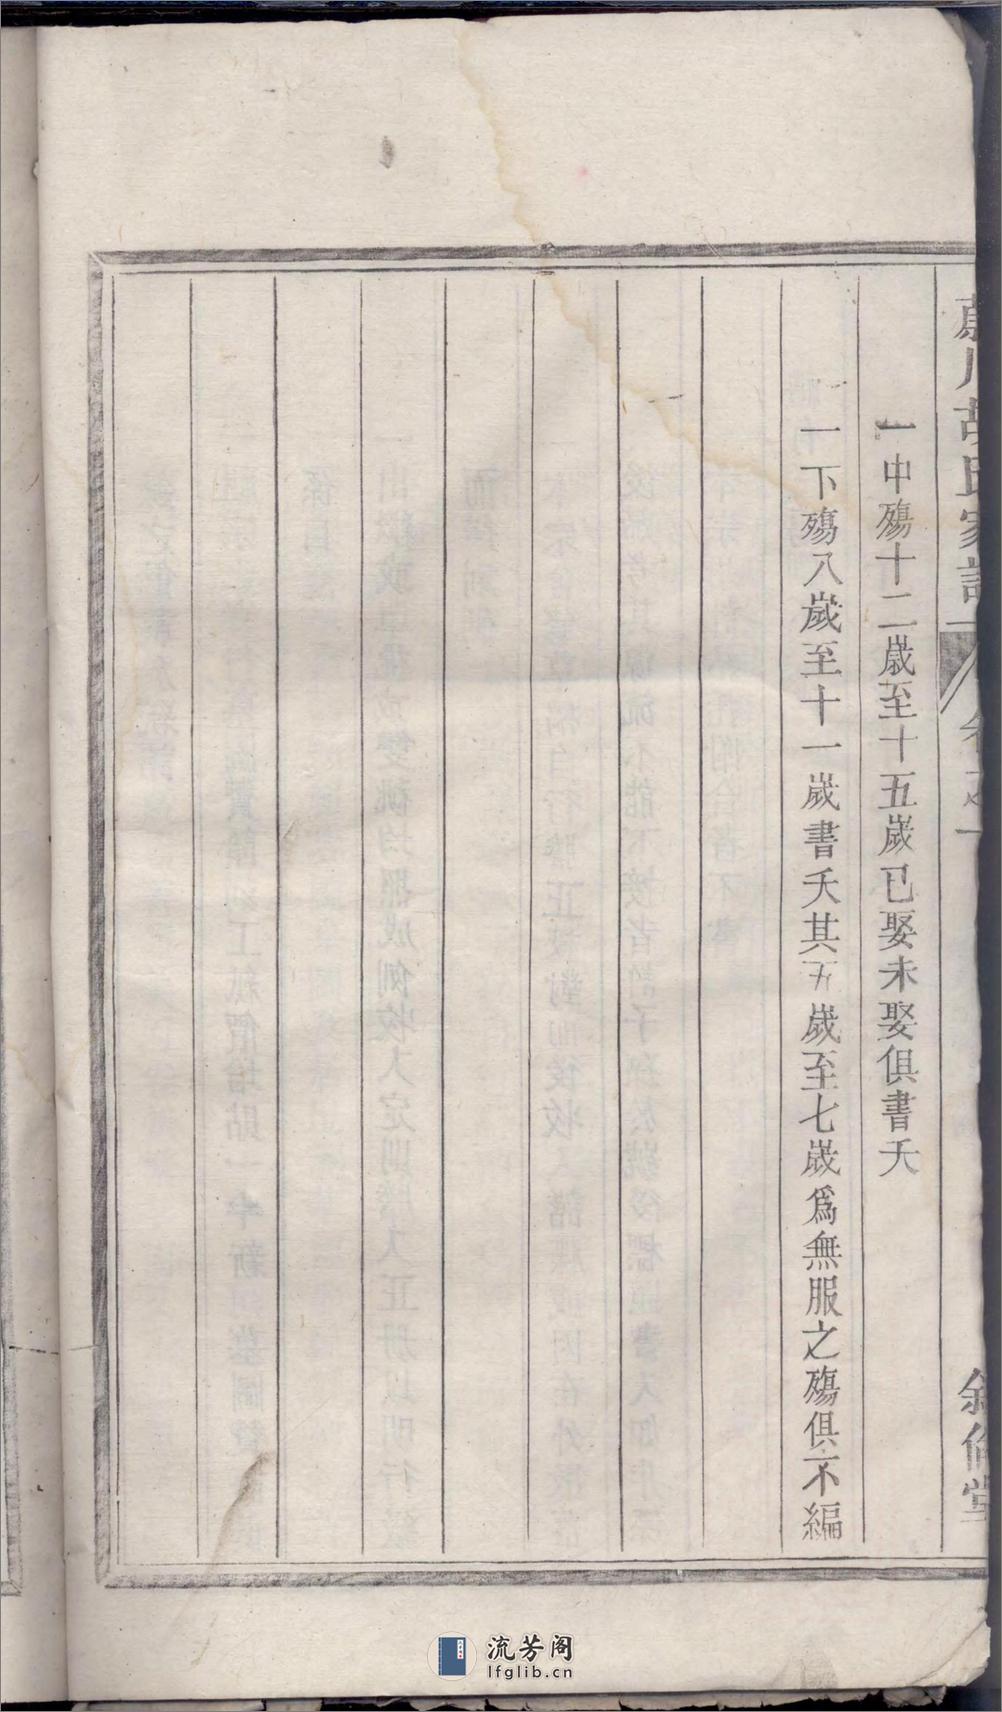 胡氏家譜
卷之一
敘倫堂
一中殤十二歲至十五歲已娶未娶俱書夭
一下殤八歲至十一歲書夭其五歲至七歲爲無服之殤俱不編
流芳阁
lfglib.cn